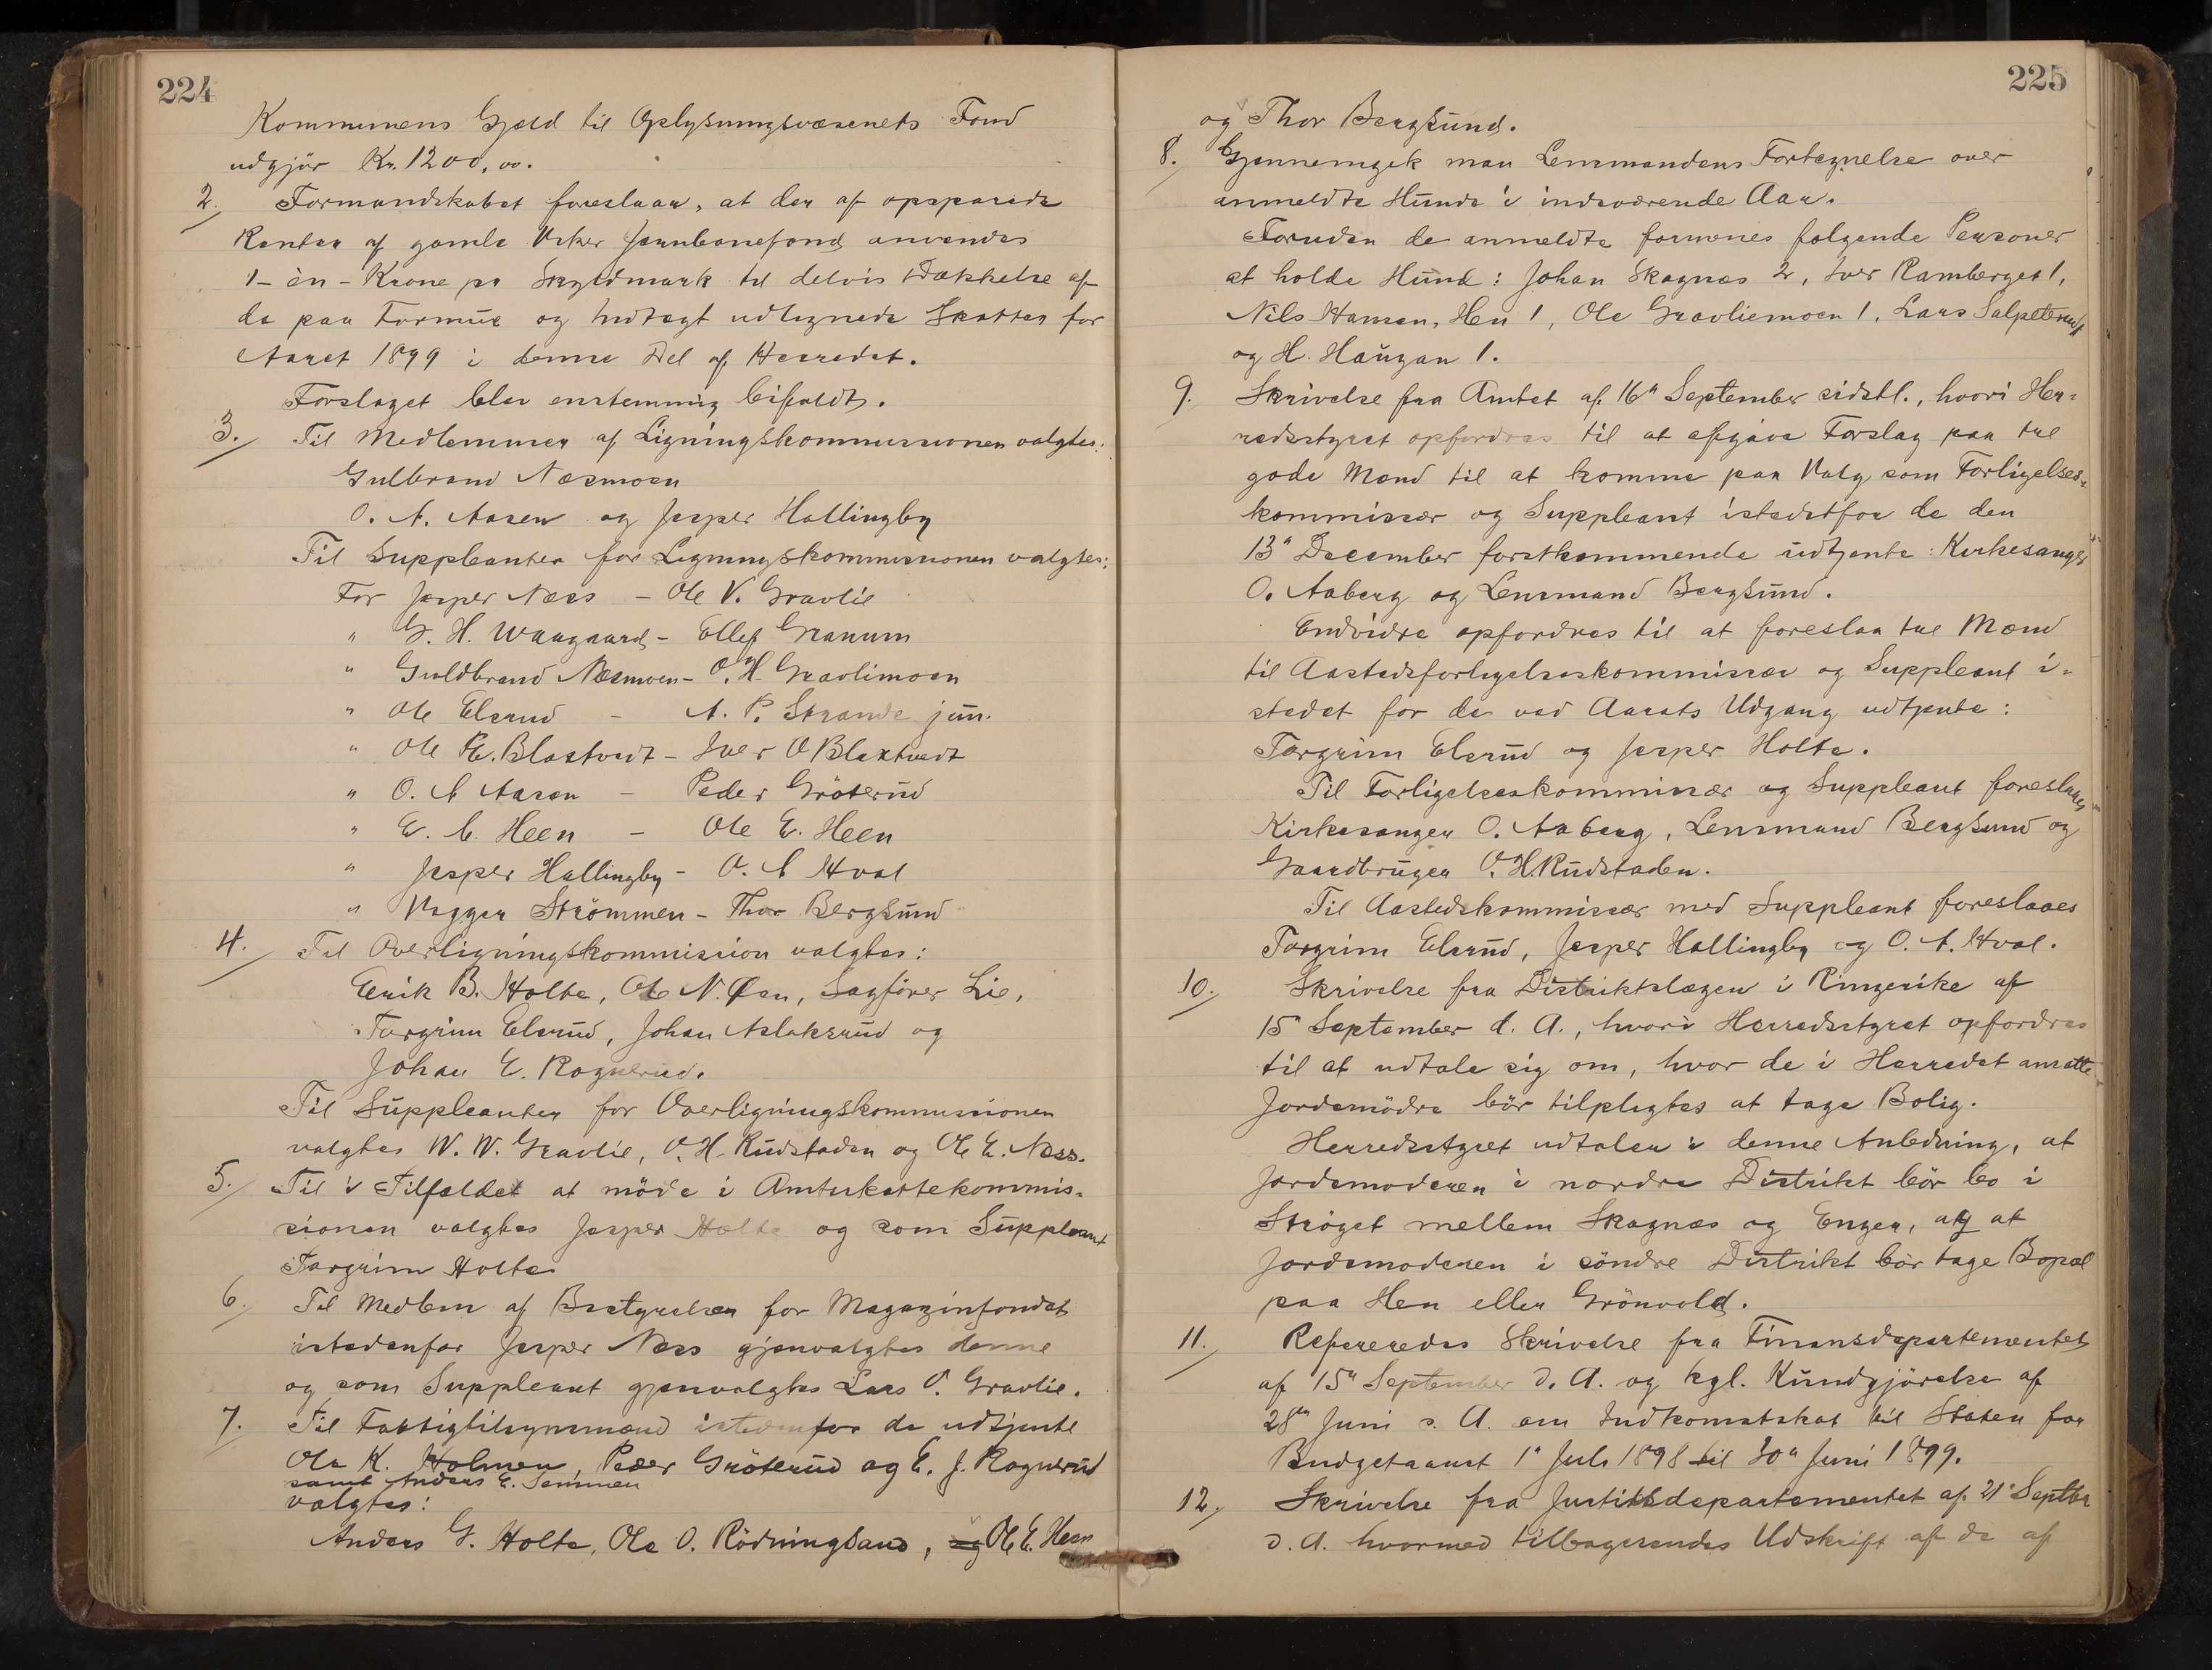 224
Kommunens Gjæld til Oplysningsvæsenets Fond
udgjör Kr. 1200,00.
2. Formandskabet foreslaar, at der af opsparede
Renter af gamle Viker Jernbanefond anvendes
1 - èn - Krone pr Skyldmark til delvis Dækkelse af
de paa Formue og Indtægt udlignede Skatter for
Aaret 1899 i denne Del af Herredet.
Forslaget blev enstemmig bifaldt.
3. Til Medlemmer af Ligningskommissionen valgtes:
Gulbrand Næsmoen
O. A. Aasen og Jesper Hallingby
Til Suppleanter for Ligningskommissionen valgtes:
For Jesper Næss - Ole V. Gravlie
" G. H. Waagaard - Ellef Granum
" Guldbrand Næsmoen - O. H. Gravlimoen
" Ole Elsrud - A. P. Strande jun.
" Ole E. Blaktvedt - Iver O Blaktvedt
" O. A Aasen - Peder Gröterud
" E. C. Heen - Ole E. Heen
" Jesper Hallingby - O. A Hval
" Vegger Strömmen - Thor Bergsund
4. Til Overligningskommission valgtes:
Erik B. Holte, Ole N. Öen, Sagförer Lie,
Torgrim Elsrud, Johan Aslaksrud og
Johan E. Rognerud.
Til Suppleanter for Overligningskommissionen
valgtes N. N. Gravlie, O. H. Rudstaden og Ole E. Næss.
5. Til i Tilfældet at möde i Amtsskattekommis-
sionen valgtes Jesper Holte og som Suppleant
Torgrim Holte
6. Til Medlem af Bestyrelsen for Magazinfondet
istedenfor Jesper Næss gjenvalgtes denne
og som Suppleant gjenvalgtes Lars O. Gravlie.
7. Til Fattigtilsynsmænd istedenfor de udtjente
Ole K. Holmen, Peder Gröterud og E. J. Rognerud
samt Anders E. Semmen
valgtes:
Anders G. Holte, Ole O. Rödningsand, og Ole E. Heen
225
og Thor Bergsund.
8. Gjennemgik man Lensmandens Fortegnelse over
anmeldte Hunde i indeværende Aar.
Foruden de anmeldte formenes følgende Personer
at holde Hund: Johan Skagnæs 2, Iver Ramberget 1,
Nils Hansen, Hen 1, Ole Gravliemoen 1, Lars
og H. Haugan 1.
9. Skrivelse fra Amtet af 16de September sidstl., hvori Her-
redsstyret opfordres til at afgive Forslag paa tre
gode Mænd til at komme paa Valg som Forligelses-
kommissær og Suppleant istedetfor de den
13de December førstkommende udtjente: Kirkesanger
O. Aaberg og Lensmand Bergsund.
Endvidre opfordres til at foreslaa tre Mænd
til Aastedsforligelseskommissær og Suppleant i-
stedet for de ved Aarets Udgang udtjente:
Torgrim Elsrud og Jesper Holte.
Til Forligelseskommissær og Suppleant foreslaaes
Kirkesanger O. Aaberg, Lensmand Bergsund og
Gaardbruger O. H. Rudstaden.
Til Aastedskommissær med Suppleant foreslaaes
Torgrim Elsrud, Jesper Hallingby og O. A. Hval.
10. Skrivelse fra Distriktslægen i Ringerike af
15de September d. A., hvori Herredsstyret opfordres
til at udtale sig om, hvor de i Herredet ansatte
Jordemödre bör tilpligtes at tage Bolig.
Herredsstyret udtaler i denne Anledning, at
Jordemoderen i nordre Distrikt bör bo i
Ströget mellem Skagnæs og Enger, og at
Jordemoderen i söndre Distrikt bör tage Bopæl
paa Hen eller Grönvold.
11. Refereredes Skrivelse fra Finansdepartementet
af 15de September d. A. og kgl. Kundgjörelse af
28de Juni s. A. om Indkomstskat til Staten for
Budgetaaret 1ste Juli 1898 til 30de Juni 1899.
12. Skrivelse fra Justitsdepartementet af 21de Septbr
d. A. hvormed tilbagesendes Udskrift af de af